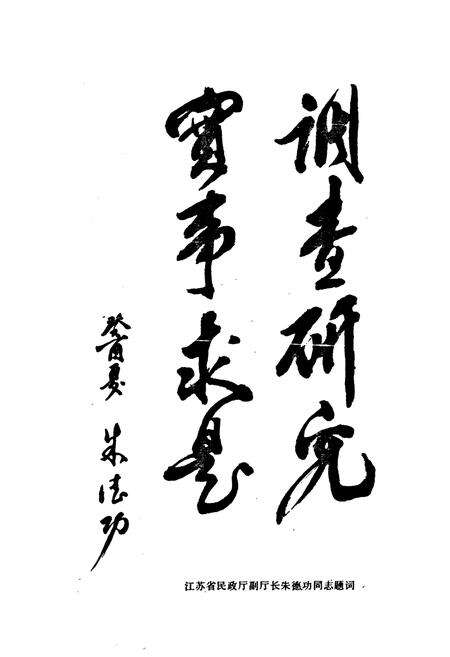 调查研究
實事求是
癸酉夏 朱德功
江苏省民政厅副厅长朱德功同志题词